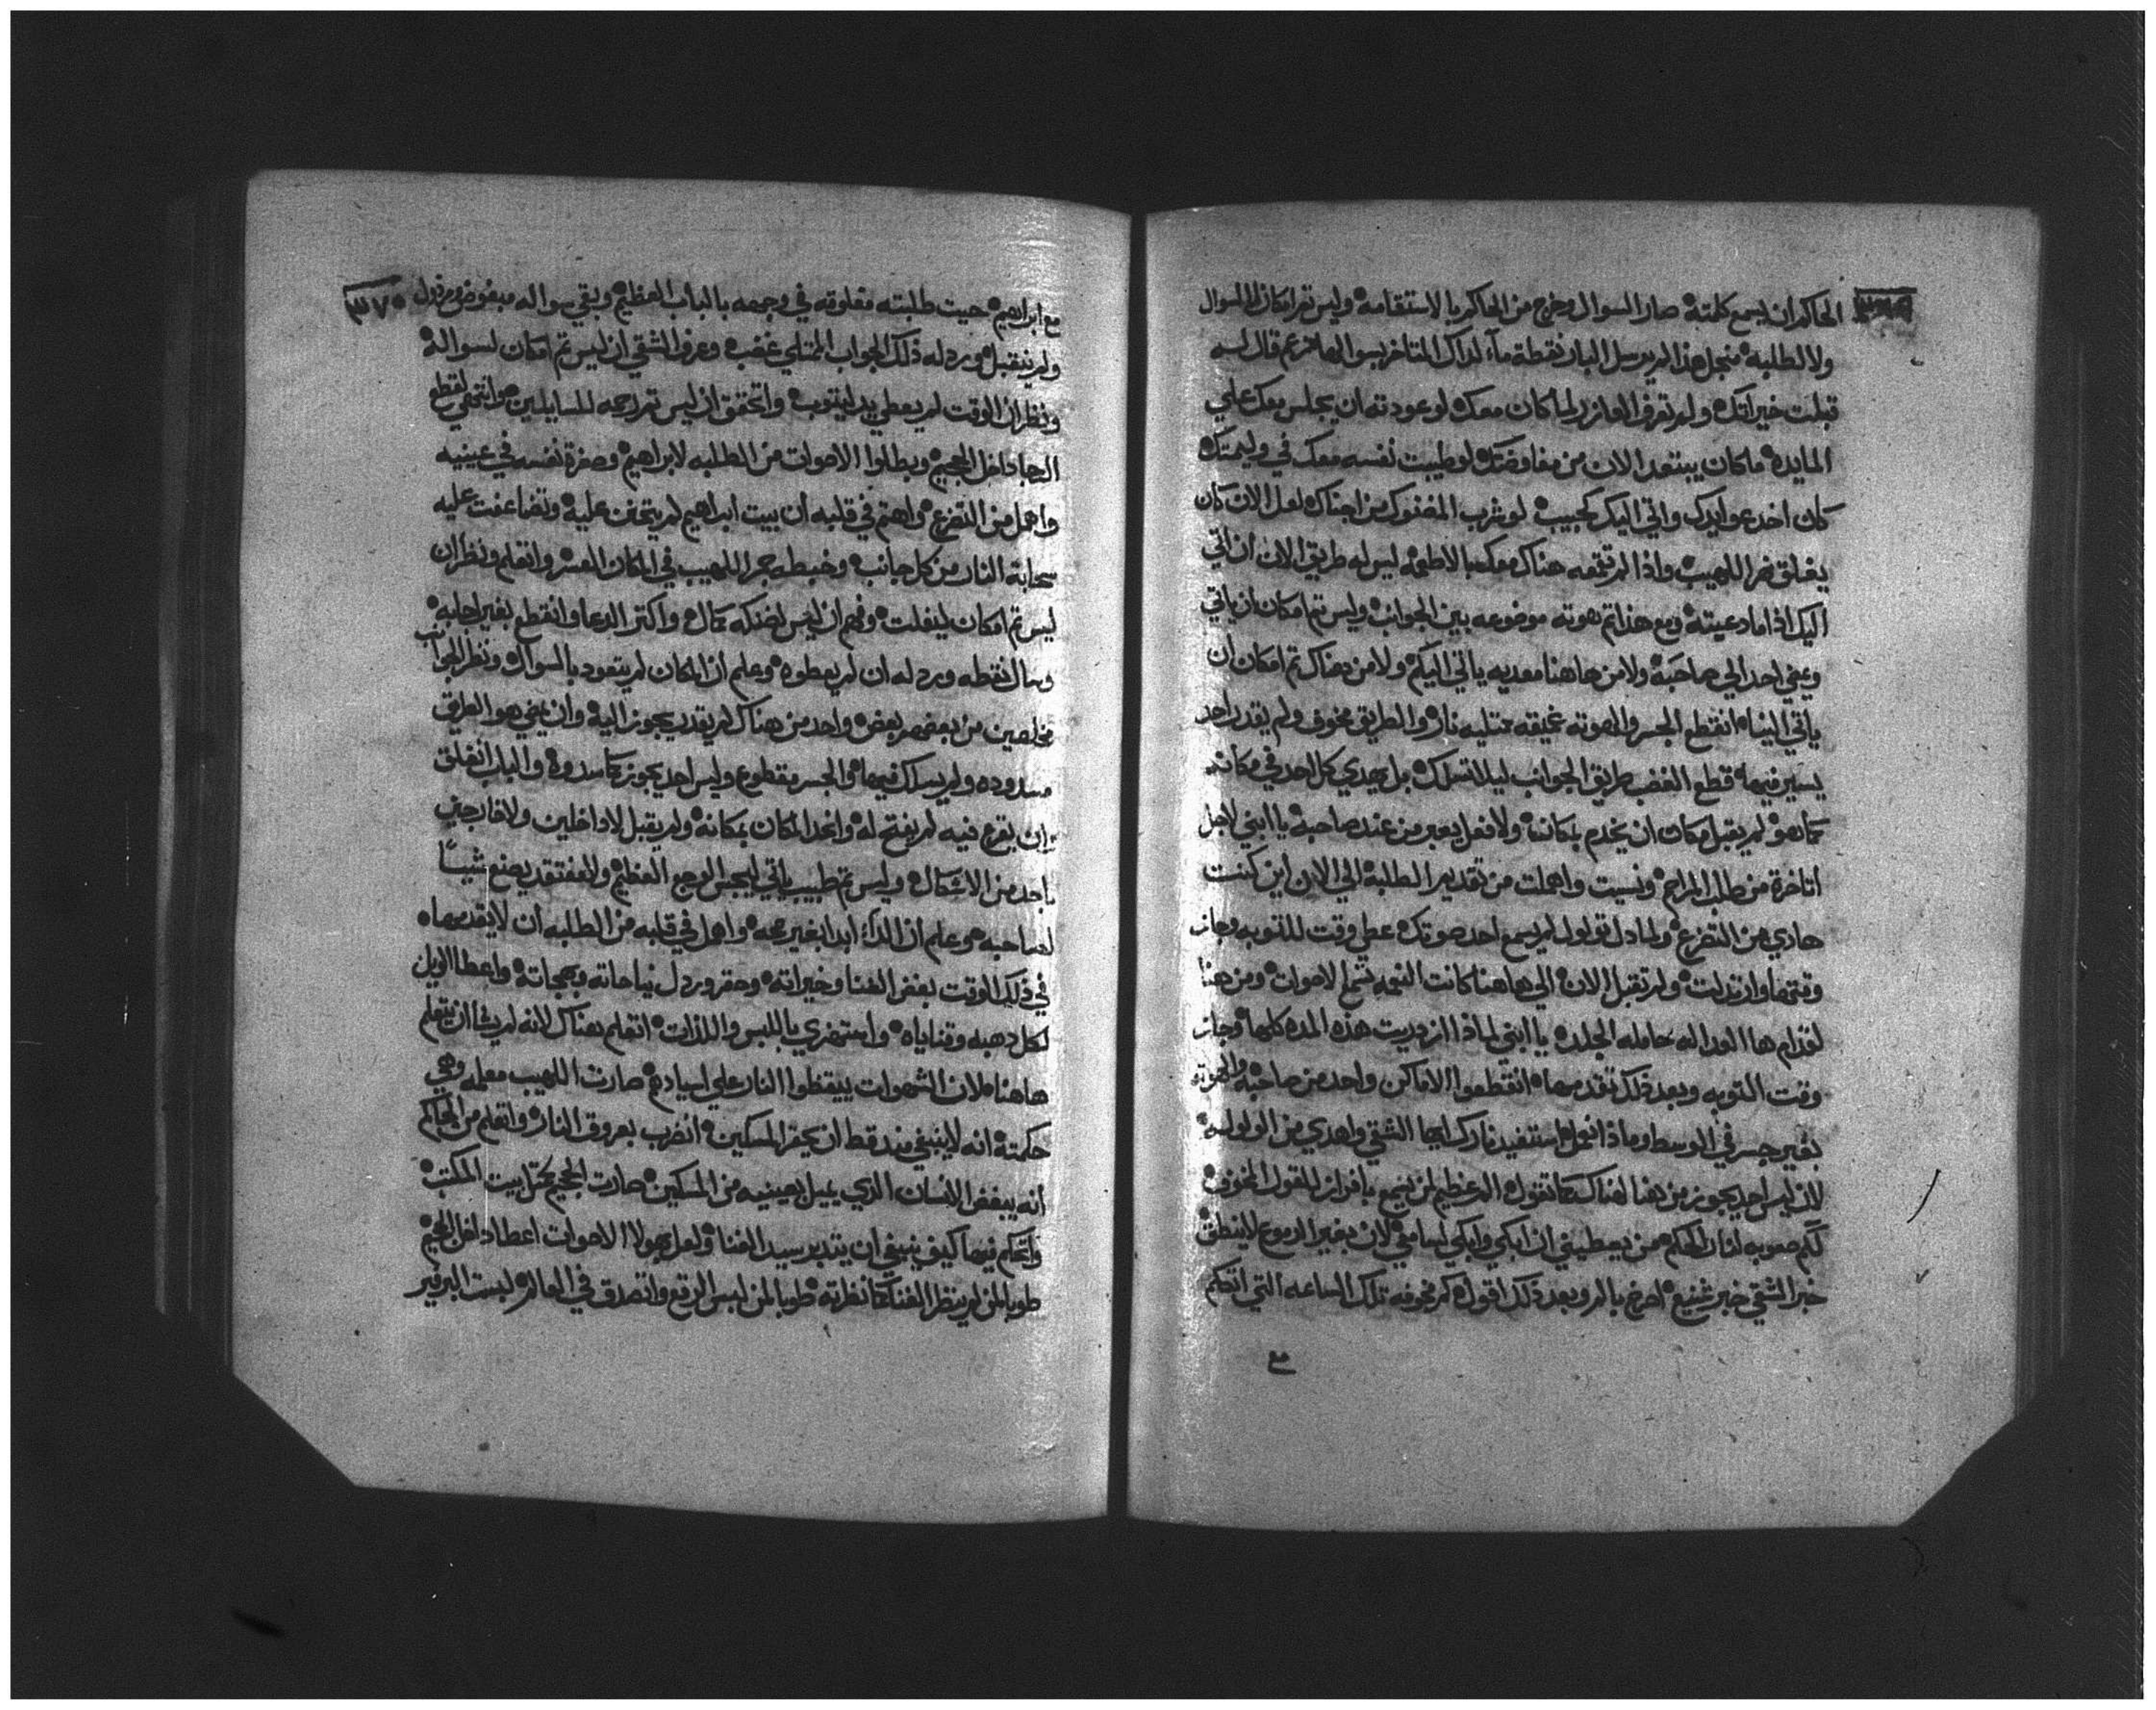 ٣٦٩
الحاكم ان يسمع كلمته صار السوال وخرج من الحاكم بالاستقامه وليس ثم امكان للسوال
ولا للطلبه منجل هذا لم يرسل البار نقطة ماء لداك المتاخر بسوالها نزعم قال له
قبلت خيراتك ولم تعرف العازر لما كان معك لو عودته ان يجلس معك علي
المايده ما كان يبتعد الان من مفاوضتك لو طيبت نفسه معك في وليمتك
كان اخد عوايدك واتي اليك كحبيب لو شرب المضنوك من اجناك لعل الان كان
يغلق نهر اللهيب واذا لم تقيمه هناك معك بالاطعمه ليس له طريق الان ان اتي
اليك اذا ما دعيته ومع هذا ثم هوته موضوعه بين الجوانب وليس ثم امكان ان ياتي
ويمضي احد الي صاحبه ولا من هاهنا معديه ياتي اليكم ولا من هناك ثم امكان ان
ياتي الينا انقطع الجسر والهوته عميقه ممتليه نار والطريق مخوف ولم يقدر احد
يسير فيها قطع الغضب طريق الجوانب ليلا تسلك بل يهدي كل احد في مكانه
كما هو لم يقبل امكان ان يخدم بمكانه ولا فعل يعبر من عند صاحبه يا ابني لاجل
اتاخرة من طلب المراحم ونسيت واهملت من تقدير الطلبه الي الان اين كنت
هادي من التضرع ولمادا تولول لم يسمع احد صوتك عطي وقت للتوبه وجاز
وقتها وارتدلت ولم تقبل الان الي هاهنا كانت النعمه تسمع لاصوات ومن هنا
لقدام ها العداله حامله الجلده يا ابني لماذا ازدريت هذه المده كلها وجاز
وقت التوبه وبعد ذلك تقدمها انقطعوا الاماكن واحد من صاحبه والهوته
بغير جسر في الوسط وماذا اقول استفيد نارك ايها الشقي واهدي من الولوله
لان ليس احد يجوز من هنا لهناك كما تقول المر عظيم لمن يسمع بافراز للقول المخوف
لكم صعوبه لسان الحكم من يعطيني ان ابكي وابكي لسامعي لان بغير الدموع لا ينطق
خبر الشقي خبر شنيع اصرخ بالمر وبعد ذلك اقول كم مخوفه تلك الساعه التي اتحكم
مع
٣٧٠
مع ابراهيم حيت طلبته مغلوقه في وجهه بالباب العظيم وبقي سواله مبغوض ومرذول
ولم ينقبل ورد له ذلك الجواب الممتلي غضب وعرف الشقي ان ليس ثم امكان لسواله
ونظر ان الوقت لم يعطي يد ليتوب واتحقق ان ليس ثم راحه للسايلين وانتهي لقطع
الرجا داخل الجحيم وبطلوا الاصوات من الطلبه لابراهيم وصغرة نفسه في عينيه
واهمل من التضرع واهتم في قلبه ان بيت ابراهيم لم يتحنن عليه وتضاعفت عليه
سحابة النار من كل جانب وخبطه جمر اللهيب في المكان العسر واتعلم ونظر ان
ليس ثم امكان لينفلت وفهم ان ليس لضنكه كمال واكتر الدعا وانقطع بغير اجابه
وسال نقطه ورد له ان لم يعطوه وعلم ان المكان لم يتعود بالسوال ونظر الجوانب
مخلصين من بعضهم بعض واحد من هناك لم يقدر يجوز اليه وان يمضي هو الطريق
مسدوده ولم يسلك فيها والجسر مقطوع وليس احد يجوز كما سدوه والباب انغلق
ان يقرع فيه لم يفتح له واتحد المكان بمكانه ولم يقبل لا داخلين ولا خارجين
باحد من الاشكال وليس ثم طبيب ياتي ليجس الوجع العظيم ولا مفتقد يصنع شيئاً
لصاحبه وعلم ان الداء ابدا بغير رحمه واهمل في قلبه من الطلبه ان لا يقدمها
في ذلك الوقت بغض الغنا وخيراته وحقر ورذل نياحاته وبهجاته واعطا الويل
لكل دهبه وقناياه واستهزي باللبس واللذات اتعلم هناك لانه لم يشا ان يتعلم
هاهنا لان الشهوات ييقظوا النار علي اسيادهم صارت اللهيب معلمه وهي
حكمته انه لا ينبغي منه قط ان يحقر المسكين انضرب بعروق النار واتعلم من الحاكم
انه يبغض الانسان الذي يميل بعينيه من المسكين صارت الجحيم كمثل بيت المكتب
واتحكم فيها كيف ينبغي ان يتدبر سيد الغنا ولعل بهولا الاصوات اعطا داخل الجحيم
طوبا لمن لم ينظر الغنا كما نظرته طوبا لمن لبس الرقع واتصدق في العالم لبست البرفير